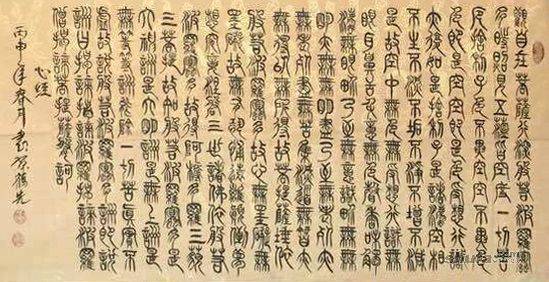 觀自在菩薩行深般若波羅蜜
多時照見五蘊皆空度一切苦
厄舍利子色不異空空不異色
色即是空空即是色受想行識
亦復如是舍利子是諸法空相
不生不滅不垢不淨不增不減
是故空中無色無受想行識無
眼耳鼻舌身意無色聲香味觸
法無眼界乃至無意識界無無
明亦無無明盡乃至無老死亦
無老死盡無苦集滅道無智亦
無得以無所得故菩提薩埵依
般若波羅蜜多故心無罣礙無
罣礙故無有恐怖遠離顛倒夢
想究竟涅槃三世諸佛依般若
波羅蜜多故得阿耨多羅三藐
三菩提故知般若波羅蜜多是
大神咒是大明咒是無上咒是
無等等咒能除一切苦真實不
虛故說般若波羅蜜多咒即說
咒曰揭諦揭諦波羅揭諦波羅
僧揭諦菩提薩婆訶
心經
丙申年春月書